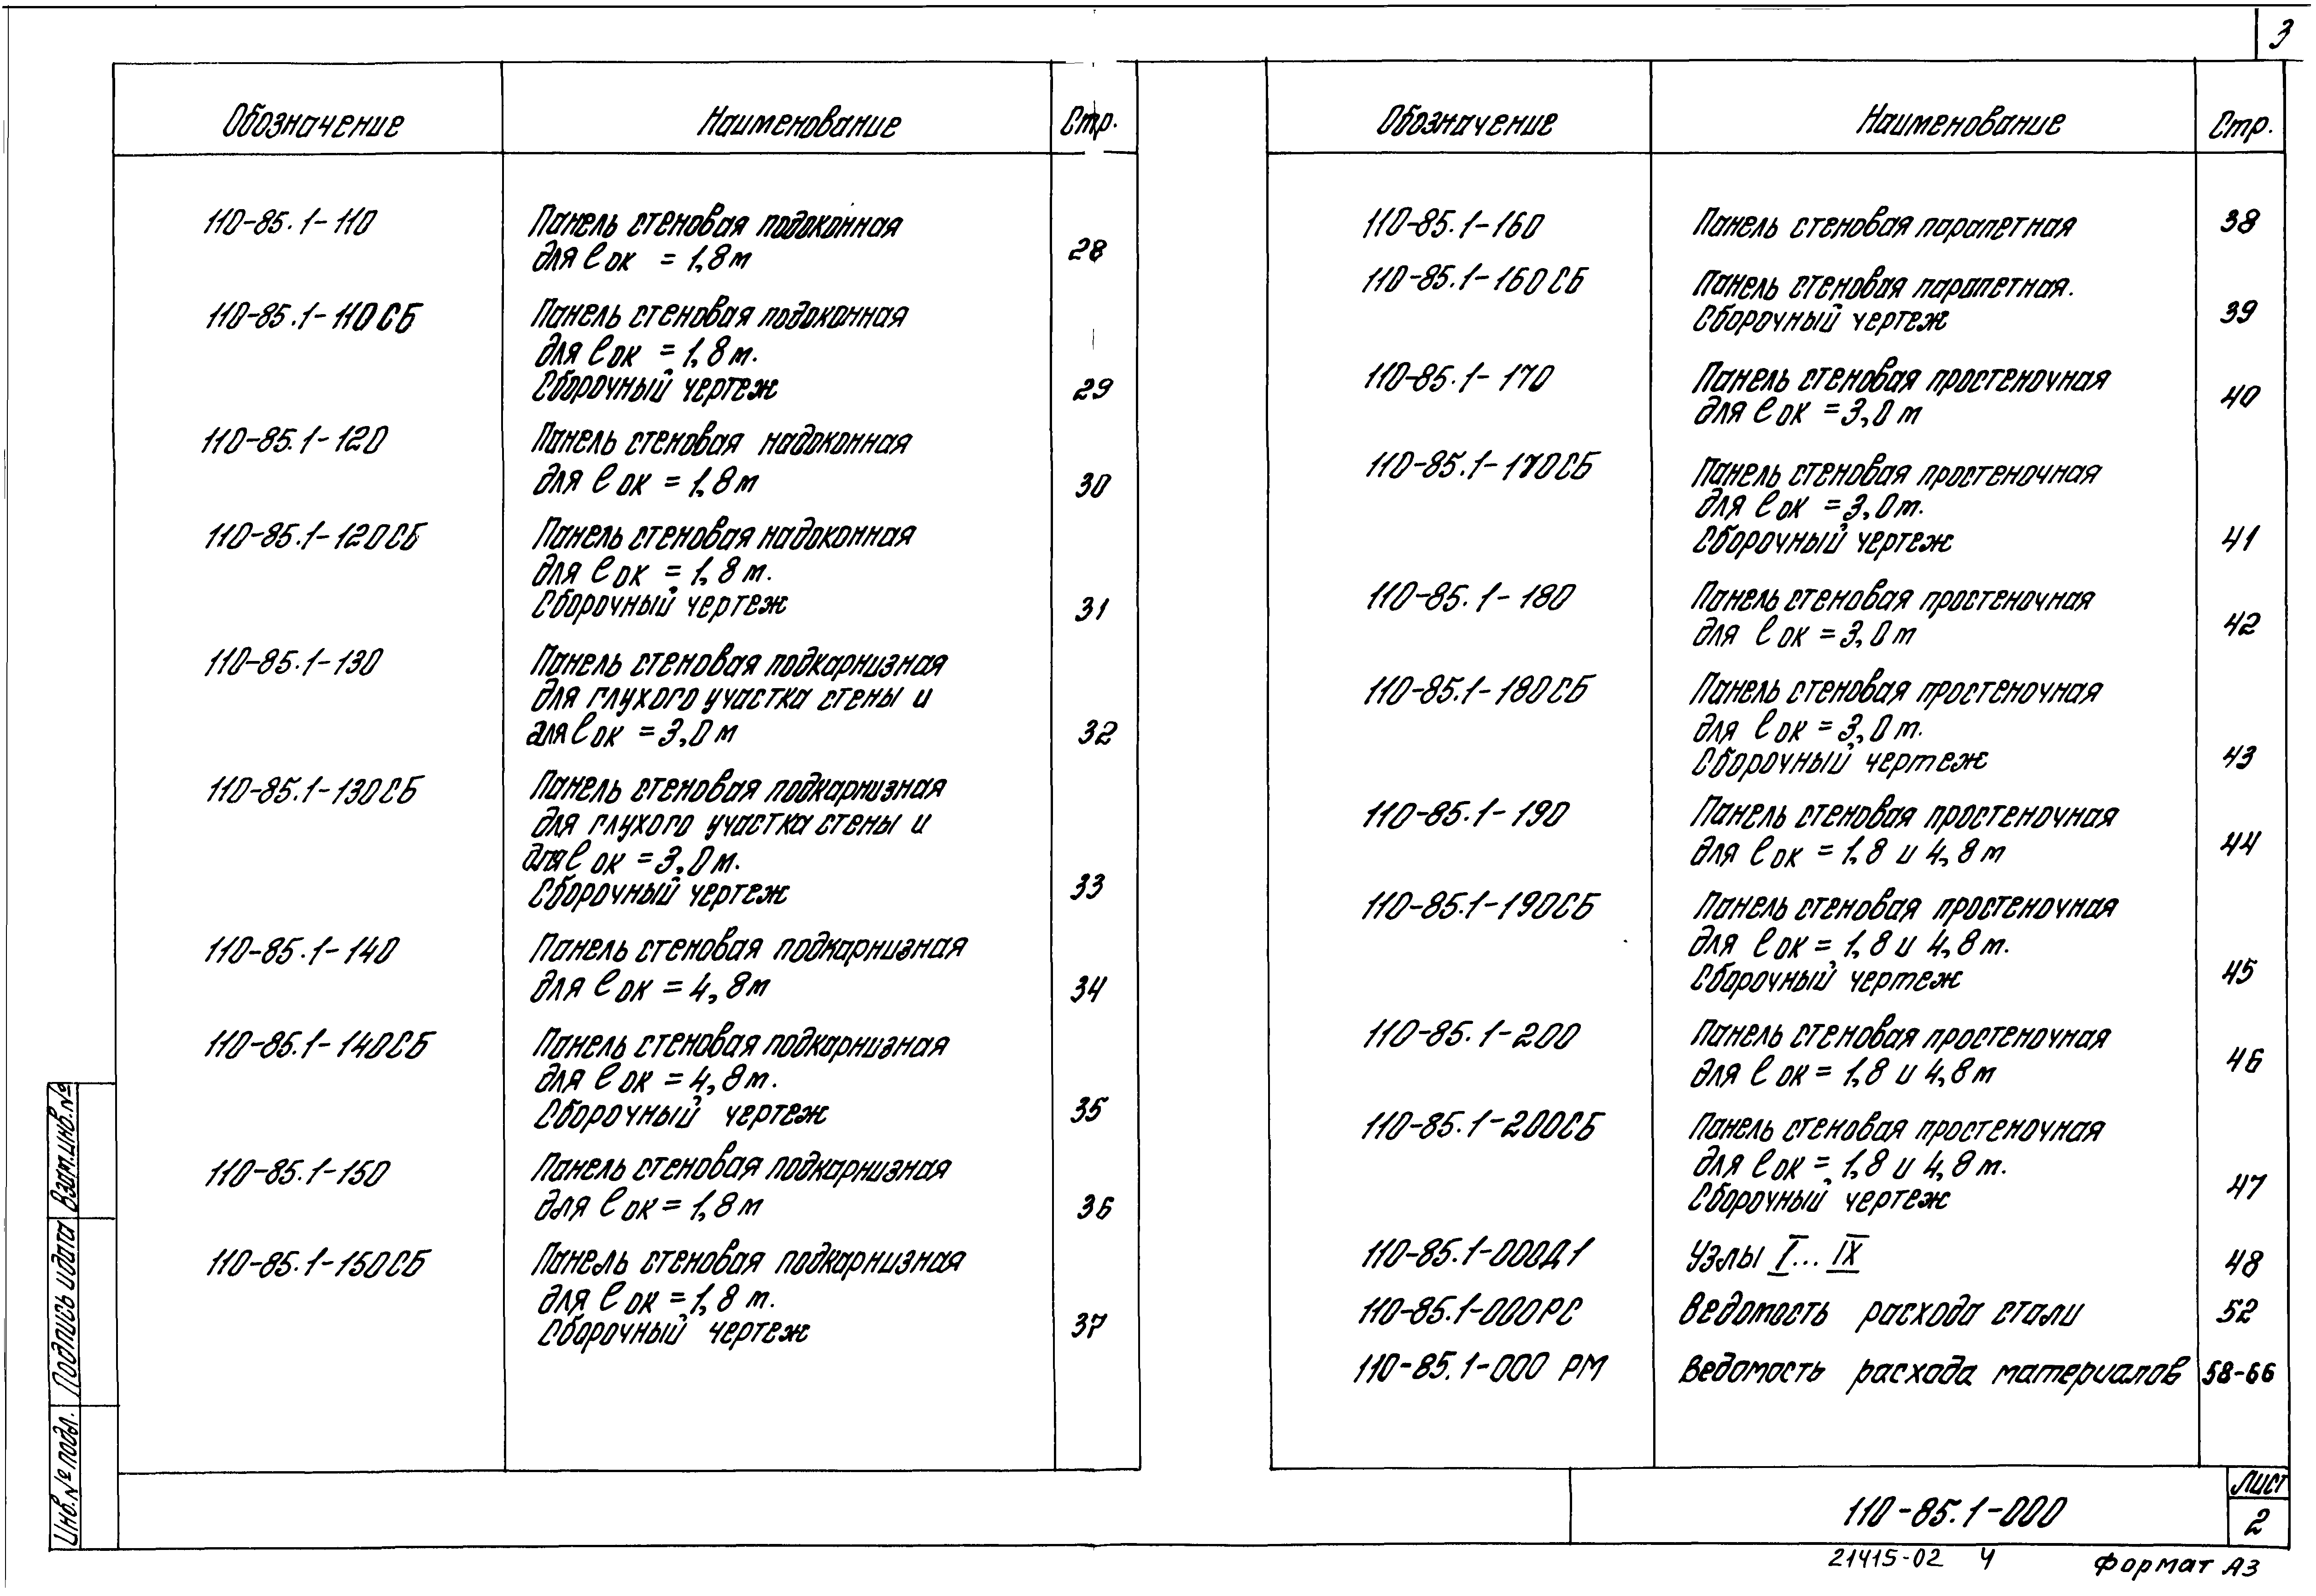 3
Обозначение Наименование Стр.
110-85.1-110 Панель стеновая подоконная
для ℓок = 1,8 м 28
110-85.1-110СБ Панель стеновая подоконная
для ℓок = 1,8 м.
Сборочный чертеж 29
110-85.1-120 Панель стеновая надоконная
для ℓок = 1,8 м 30
110-85.1-120СБ Панель стеновая надоконная
для ℓок = 1,8 м.
Сборочный чертеж 31
110-85.1-130 Панель стеновая подкарнизная
для глухого участка стены и
для ℓок = 3,0 м 32
110-85.1-130СБ Панель стеновая подкарнизная
для глухого участка стены и
для ℓок = 3,0 м.
Сборочный чертеж 33
110-85.1-140 Панель стеновая подкарнизная
для ℓок = 4,8 м 34
110-85.1-140СБ Панель стеновая подкарнизная
для ℓок = 4,8 м.
Сборочный чертеж 35
110-85.1-150 Панель стеновая подкарнизная
для ℓок = 1,8 м 36
110-85.1-150СБ Панель стеновая подкарнизная
для ℓок = 1,8 м.
Сборочный чертеж 37
Обозначение Наименование Стр.
110-85.1-160 Панель стеновая парапетная 38
110-85.1-160СБ Панель стеновая парапетная.
Сборочный чертеж 39
110-85.1-170 Панель стеновая простеночная
для ℓок = 3,0 м 40
110-85.1-170СБ Панель стеновая простеночная
для ℓок = 3,0 м.
Сборочный чертеж 41
110-85.1-180 Панель стеновая простеночная
для ℓок = 3,0 м 42
110-85.1-180СБ Панель стеновая простеночная
для ℓок = 3,0 м.
Сборочный чертеж 43
110-85.1-190 Панель стеновая простеночная
для ℓок = 1,8 и 4,8 м 44
110-85.1-190СБ Панель стеновая простеночная
для ℓок = 1,8 и 4,8 м.
Сборочный чертеж 45
110-85.1-200 Панель стеновая простеночная
для ℓок = 1,8 и 4,8 м 46
110-85.1-200СБ Панель стеновая простеночная
для ℓок = 1,8 и 4,8 м.
Сборочный чертеж 47
110-85.1-000Д1 Узлы I... IX 48
110-85.1-000РС Ведомость расхода стали 52
110-85.1-000 РМ Ведомость расхода материалов 58-66
Инв.№ подл. Подпись и дата Взам.инв.№
110-85.1-000
Лист
2
21415-02 4 Формат А3